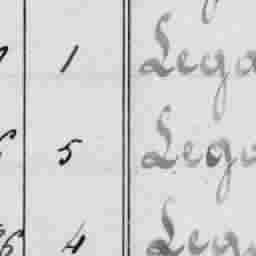 1 Lega
5 Lega
6 4 Lega